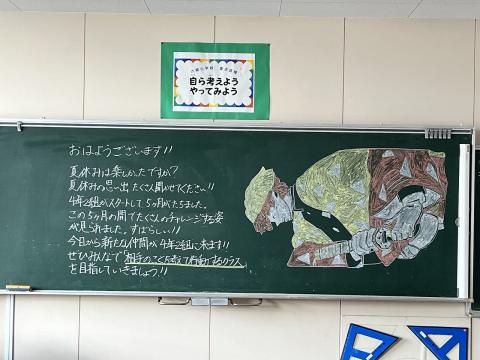 自ら考えよう
やってみよう
おはようございます!!
夏休みは楽しかったですか?
夏休みの思い出たくさん聞かせてください!!
4年2組がスタートして5ヶ月がたちました。
この5ヶ月の間でたくさんのチャレンジする姿
が見られました。すばらしい!!
今日から新たな仲間が4年2組に来ます!!
ぜひみんなで「相手のことを考えて行動するクラス」
を目指していきましょう!!